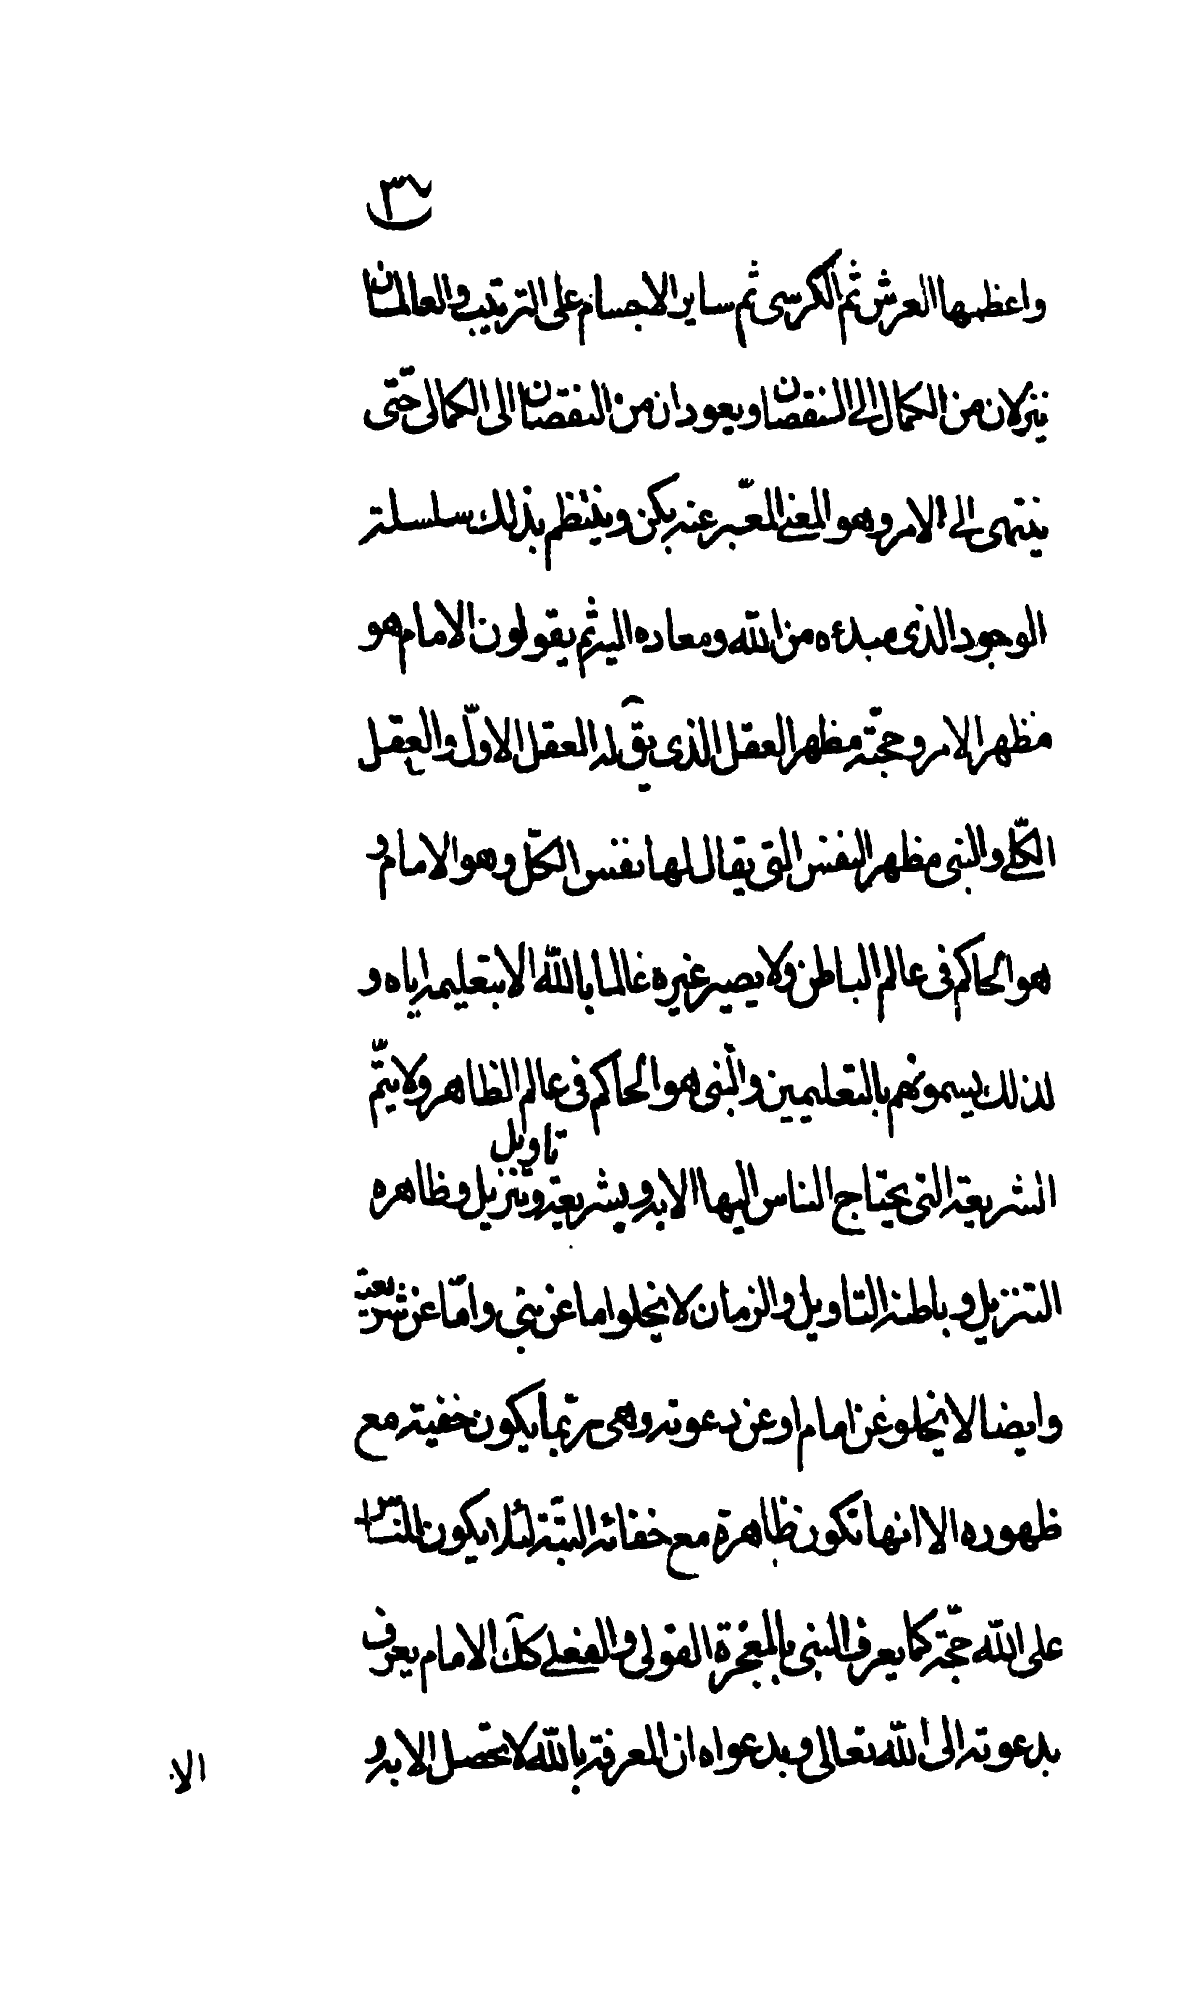 ٣٧
واعظمها العرش ثم الكرسى ثم ساير الاجسام على الترتيب والعالمان
ينزلان من الكمال الى النقصان ويعودان من النقصان الى الكمال حتّى
ينتهى الى الامر وهو المعنى المعبّر عنه بكن وينتظم بذلك سلسلة
الوجود الذى مبدءه من الله ومعاده اليه ثم يقولون الامام هو
مظهر الامر وحجّته مظهر العقل الذى يق له العقل الاول والعقل
الكلّى والنبى مظهر النفس التى يقال لها نفس الكلّ وهو الامام و
هو الحاكم فى عالم الباطن ولا يصير غيره عالما بالله الا بتعليمه اياه و
لذلك يسمونهم بالتعليميين والنبى هو الحاكم فى عالم الظاهر ولا يتمّ
تاويل
الشريعة التى يحتاج الناس اليها الا به وبشريعته تنزيل وظاهره
التنزيل وباطنه التاويل والزمان لا يخلوا اما عن نبى وامّا عن شريعة
وايضا لا يخلو عن امام او عن دعوته وهى ربّما يكون خفية مع
ظهوره الا انها تكون ظاهرة مع خفائه البتّة لئلا يكون للناس
على الله حجّة كما يعرف النبى بالمعجزة القولى والفعلى كك الامام يعرف
بدعوته الى الله تعالى وبدعواه ان المعرفة بالله لا تحصل الا به و
الا